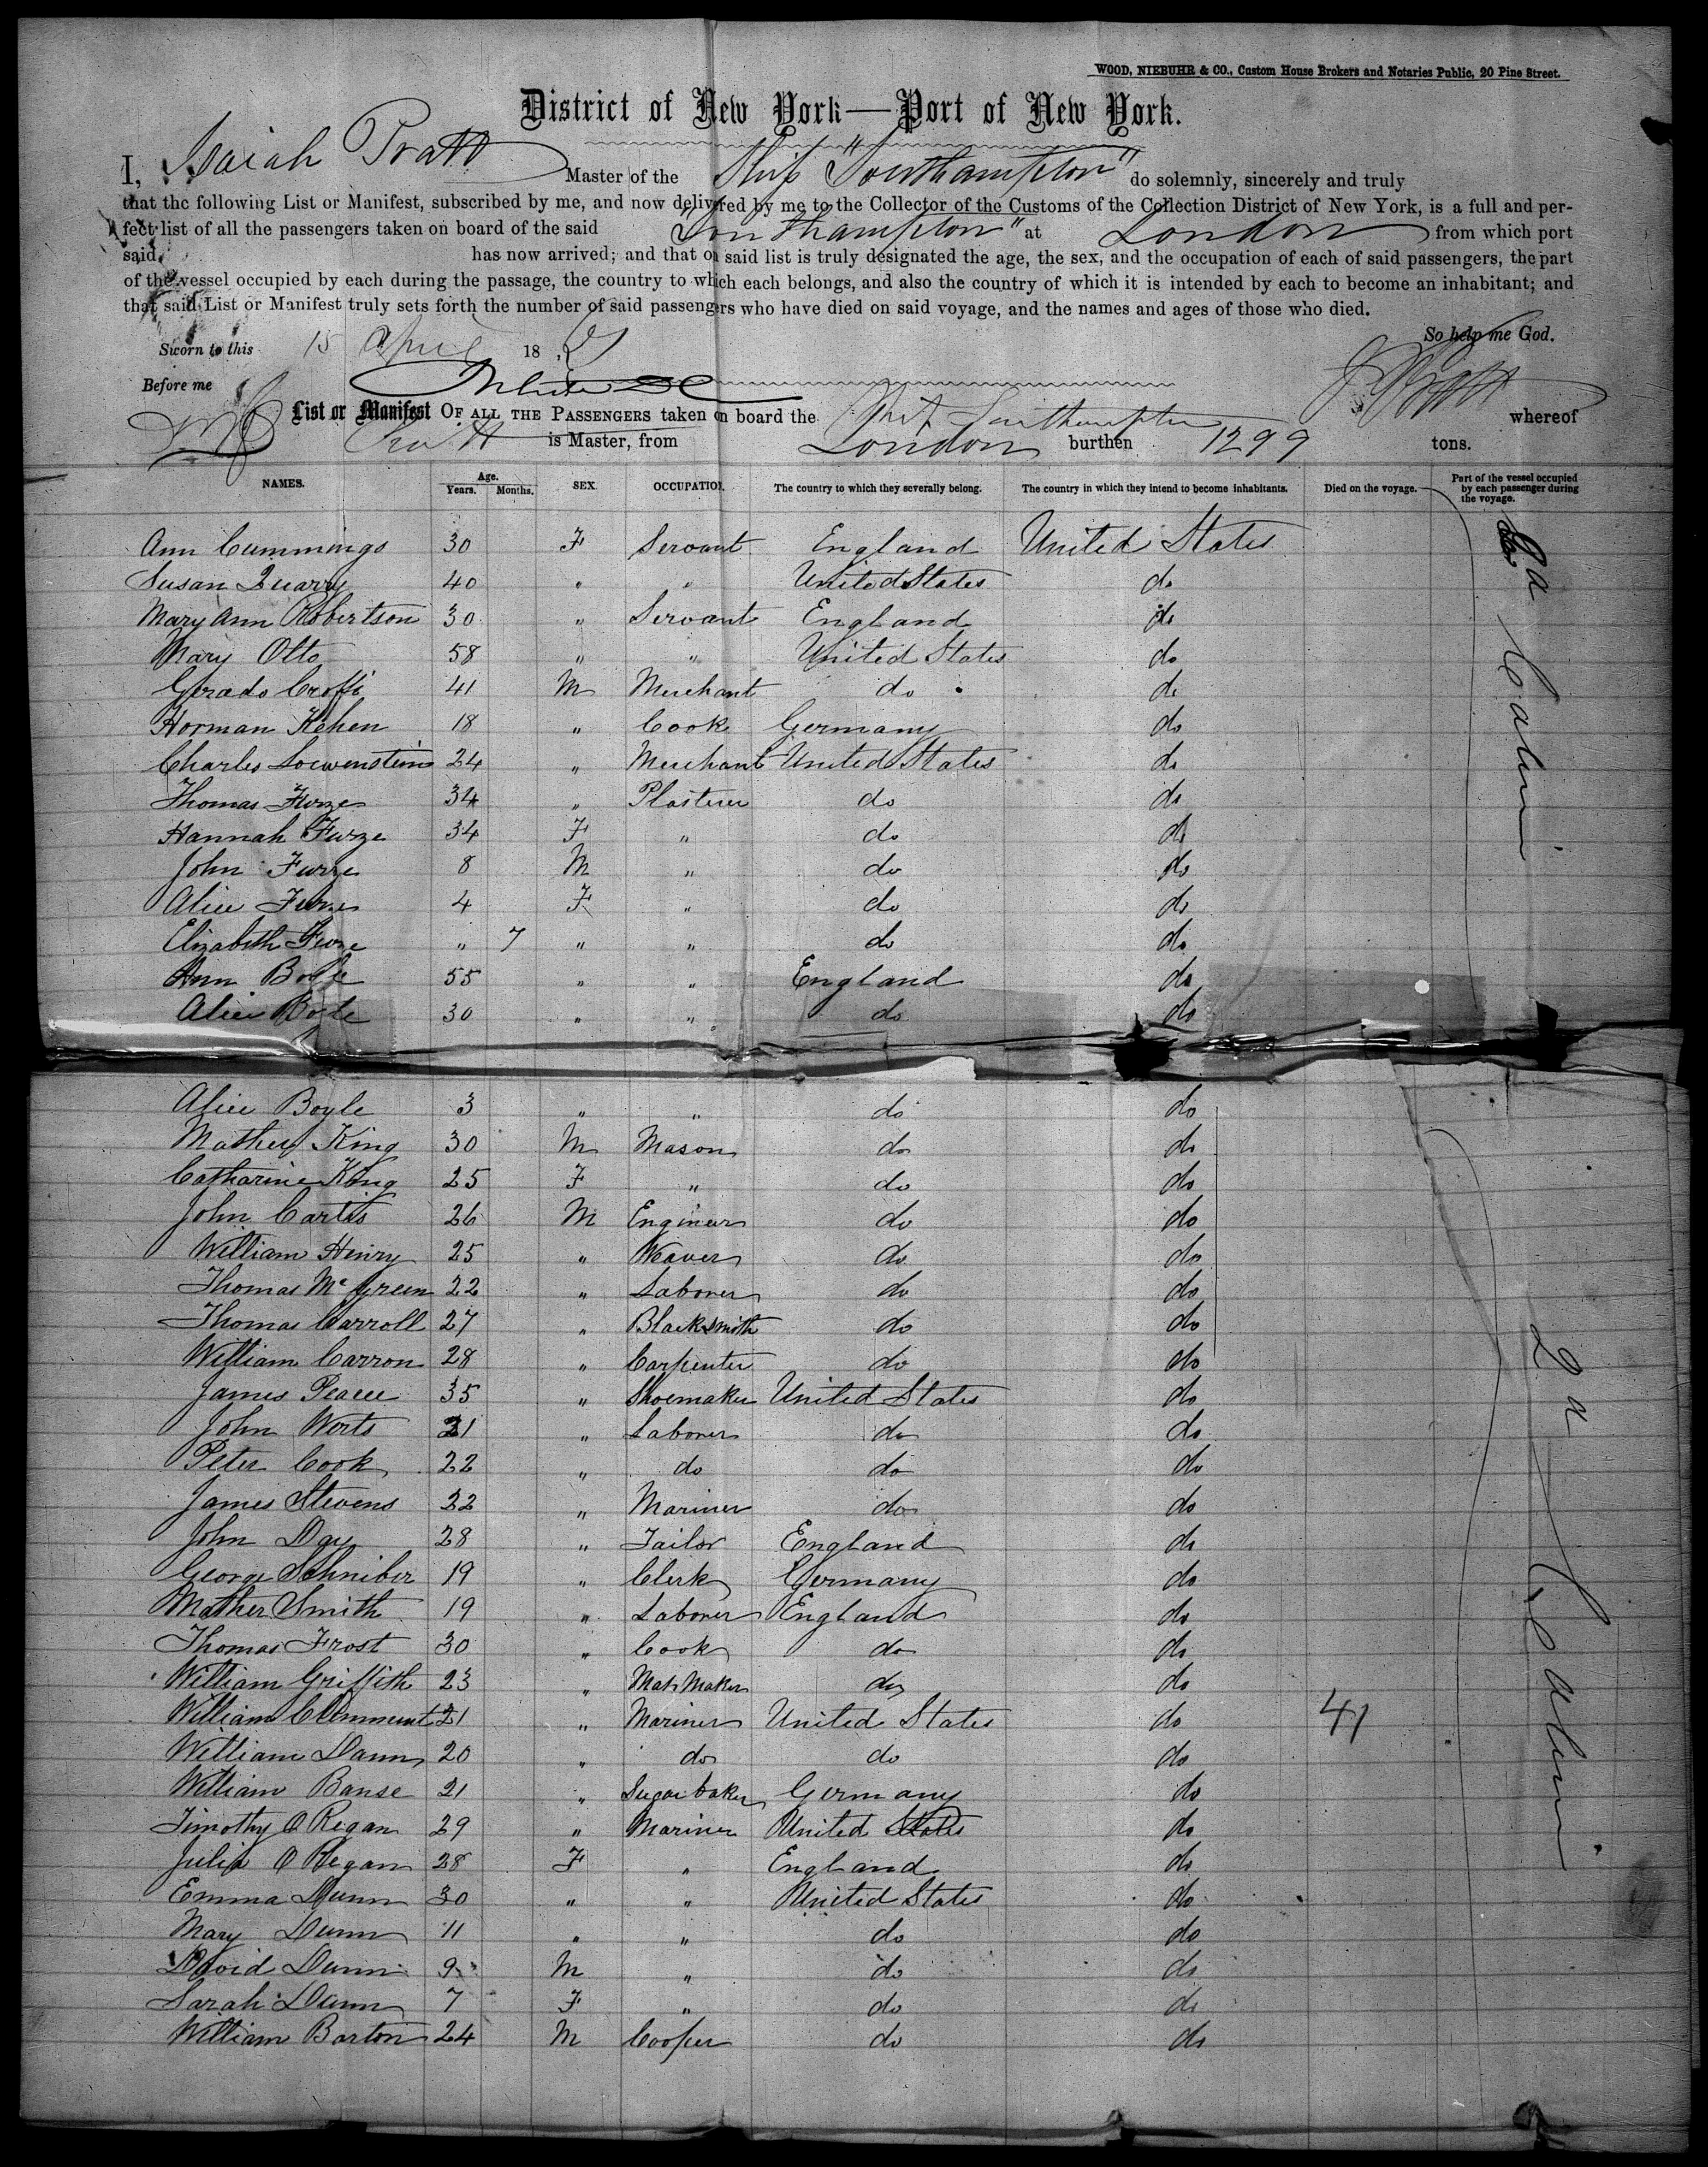 WOOD, NIEBUHR & CO., Custom House Brokers and Notaries Public, 20 Pine Street.
District of New York—Port of New York.
I, Isaiah Pratt Master of the Ship "Southampton" do solemnly, sincerely and truly
that the following List or Manifest, subscribed by me, and now delivered by me to the Collector of the Customs of the Collection District of New York, is a full and per-
fect list of all the passengers taken on board of the said "Southampton" at London from which port
said has now arrived; and that on said list is truly designated the age, the sex, and the occupation of each of said passengers, the part
of the vessel occupied by each during the passage, the country to which each belongs, and also the country of which it is intended by each to become an inhabitant; and
that said List or Manifest truly sets forth the number of said passengers who have died on said voyage, and the names and ages of those who died.
So help me God.
Sworn to this 15 April 18
Before me J. Pratt
List or Manifest OF ALL THE PASSENGERS taken on board the Ship Southampton whereof
Pratt is Master, from London burthen 1299 tons.
NAMES. Age. Years. Months. SEX. OCCUPATION. The country to which they severally belong. The country in which they intend to become inhabitants. Died on the voyage. Part of the vessel occupied by each passenger during the voyage.
Ann Cummings 30 F Servant England United States
Susan Quarry 40 " " United States do
Mary Ann Robertson 30 " Servant England do
Mary Otto 58 " " United States do
Gerado Croffi 41 M Merchant do do
Horman Kehen 18 " Cook Germany do
Charles Loewenstein 24 " Merchant United States do
Thomas Furze 34 " Plasterer do do
Hannah Furze 34 F " do do
John Furze 8 M " do do
Alice Furze 4 F " do do
Elizabeth Furze " 7 " " do do
Ann Boyle 55 " " England do
Alice Boyle 30 " " do do
2d Cabin
Alice Boyle 3 " " do do
Mathew King 30 M Mason do do
Catharine King 25 F " do do
John Cartis 26 M Engineer do do
William Henry 25 " Weaver do do
Thomas McGreen 22 " Laborer do do
Thomas Carroll 27 " Blacksmith do do
William Carron 28 " Carpenter do do
James Pearce 35 " Shoemaker United States do
John Werts 21 " Laborer do do
Peter Cook 22 " do do do
James Stevens 22 " Mariner do do
John Day 28 " Tailor England do
George Schniber 19 " Clerk Germany do
Mather Smith 19 " Laborer England do
Thomas Frost 30 " Cook do do
William Griffith 23 " Mat Maker do do
William Clemment 21 " Mariner United States do 41
William Dann 20 " do do do
William Banse 21 " Sugar baker Germany do
Timothy O Regan 29 " Mariner United States do
Julia O Regan 28 F " England do
Emma Dunn 30 " " United States do
Mary Dunn 11 " " do do
David Dunn 9 M " do do
Sarah Dunn 7 F " do do
William Barton 24 M Cooper do do
2d Cabin